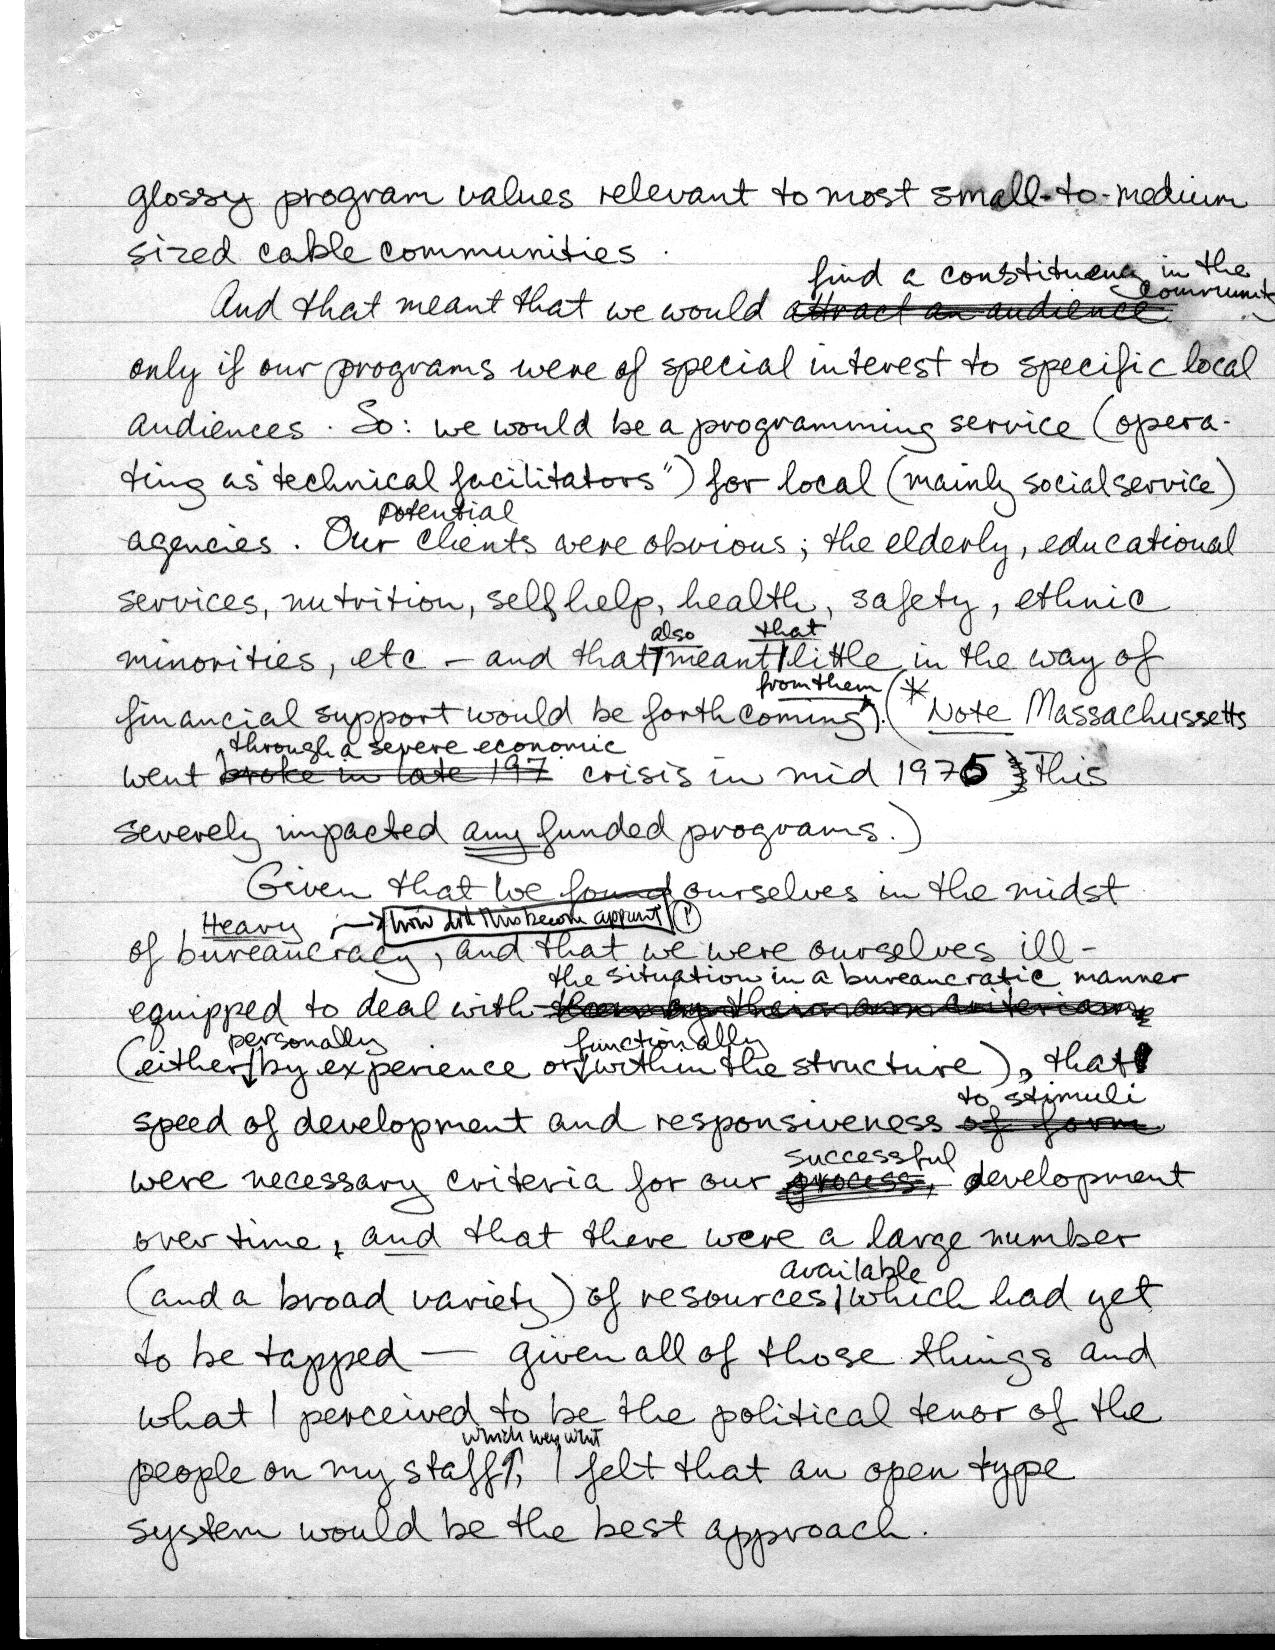 glossy program values relevant to most small-to-medium
sized cable communities.
find a constituency in the
community
And that meant that we would attract an audience
only if our programs were of special interest to specific local
audiences. So: we would be a programming service (opera-
ting as "technical facilitators") for local (mainly social service)
potential
agencies. Our clients were obvious; the elderly, educational
services, nutrition, self help, health, safety, ethnic
also that
minorities, etc — and that meant little in the way of
from them
financial support would be forthcoming. (* Note Massachussetts
through a severe economic
went broke in late 197 crisis in mid 1975; this
severely impacted any funded programs.)
Given that we found ourselves in the midst
Heavy → how did this become apparent (?)
of bureaucracy, and that we were ourselves ill-
the situation in a bureaucratic manner
equipped to deal with them by their own criterion
personally functionally
(either by experience or within the structure), that
to stimuli
speed of development and responsiveness of form
successful
were necessary criteria for our process, development
over time, and that there were a large number
available
(and a broad variety) of resources which had yet
to be tapped — given all of those things and
what I perceived to be the political tenor of the
which
people on my staff, I felt that an open type
system would be the best approach.